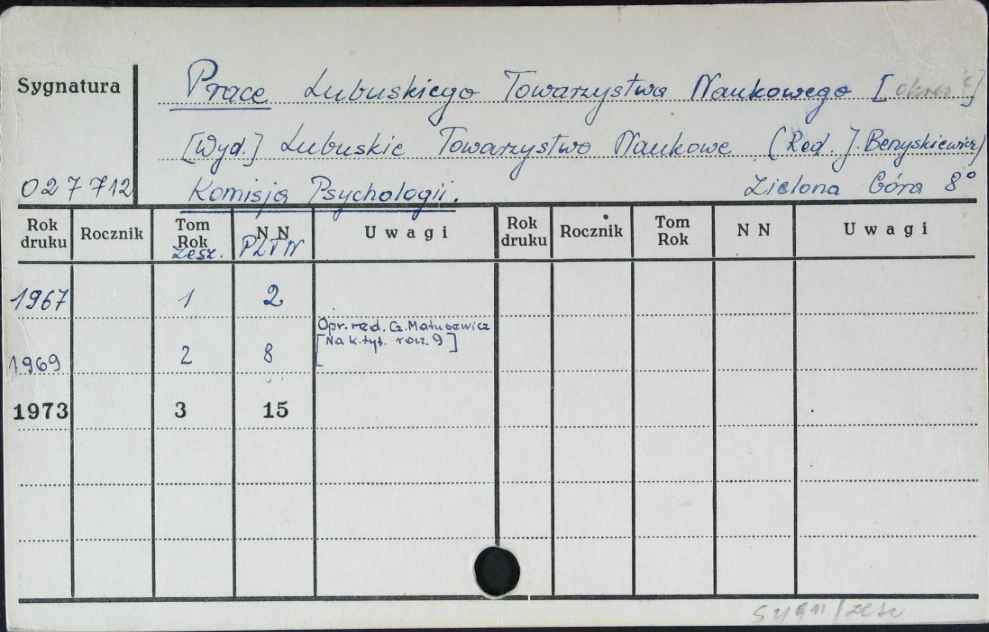 Sygnatura
Prace Lubuskiego Towarzystwa Naukowego [
[Wyd.] Lubuskie Towarzystwo Naukowe (Red. J. Benyskiewicz)
027712 Komisja Psychologii. Zielona Góra 8°
Rok druku Rocznik Tom Rok Zesz. NN PLTN Uwagi Rok druku Rocznik Tom Rok NN Uwagi
1967 1 2
Opr. red. Cz. Matusewicz
[Na k. tyt. rocz. 9]
1969 2 8
1973 3 15